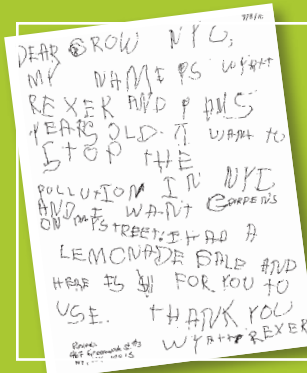 DEAR GROW NYC,
MY NAME IS WYATT
REXER AND I AM 5
YEARS OLD. I WANT TO
STOP THE
POLLUTION IN NYC
AND I WANT GARDENS
ON MY STREET. I HAD A
LEMONADE SALE AND
HERE IS $11 FOR YOU TO
USE. THANK YOU
WYATT REXER